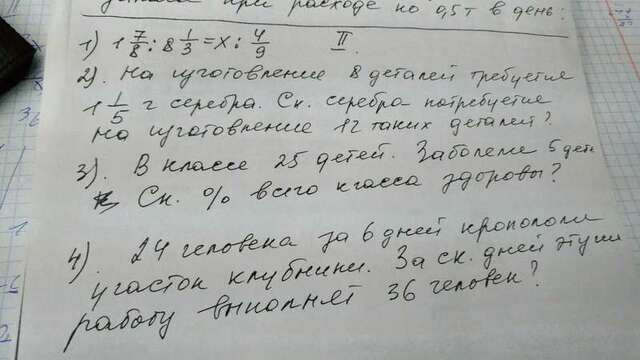 при расходе по 0,5 т в день:
1) 1 7/8 : 8 1/3 = x : 4/9 II
2). На изготовление 8 деталей требуется
1 1/5 г серебра. Ск. серебра потребуется
на изготовление 12 таких деталей?
3). В классе 25 детей. Заболели 5 дет
Ск. % всего класса здоровы?
4). 24 человека за 6 дней пропололи
участок клубники. За ск. дней эту
работу выполнят 36 человек?